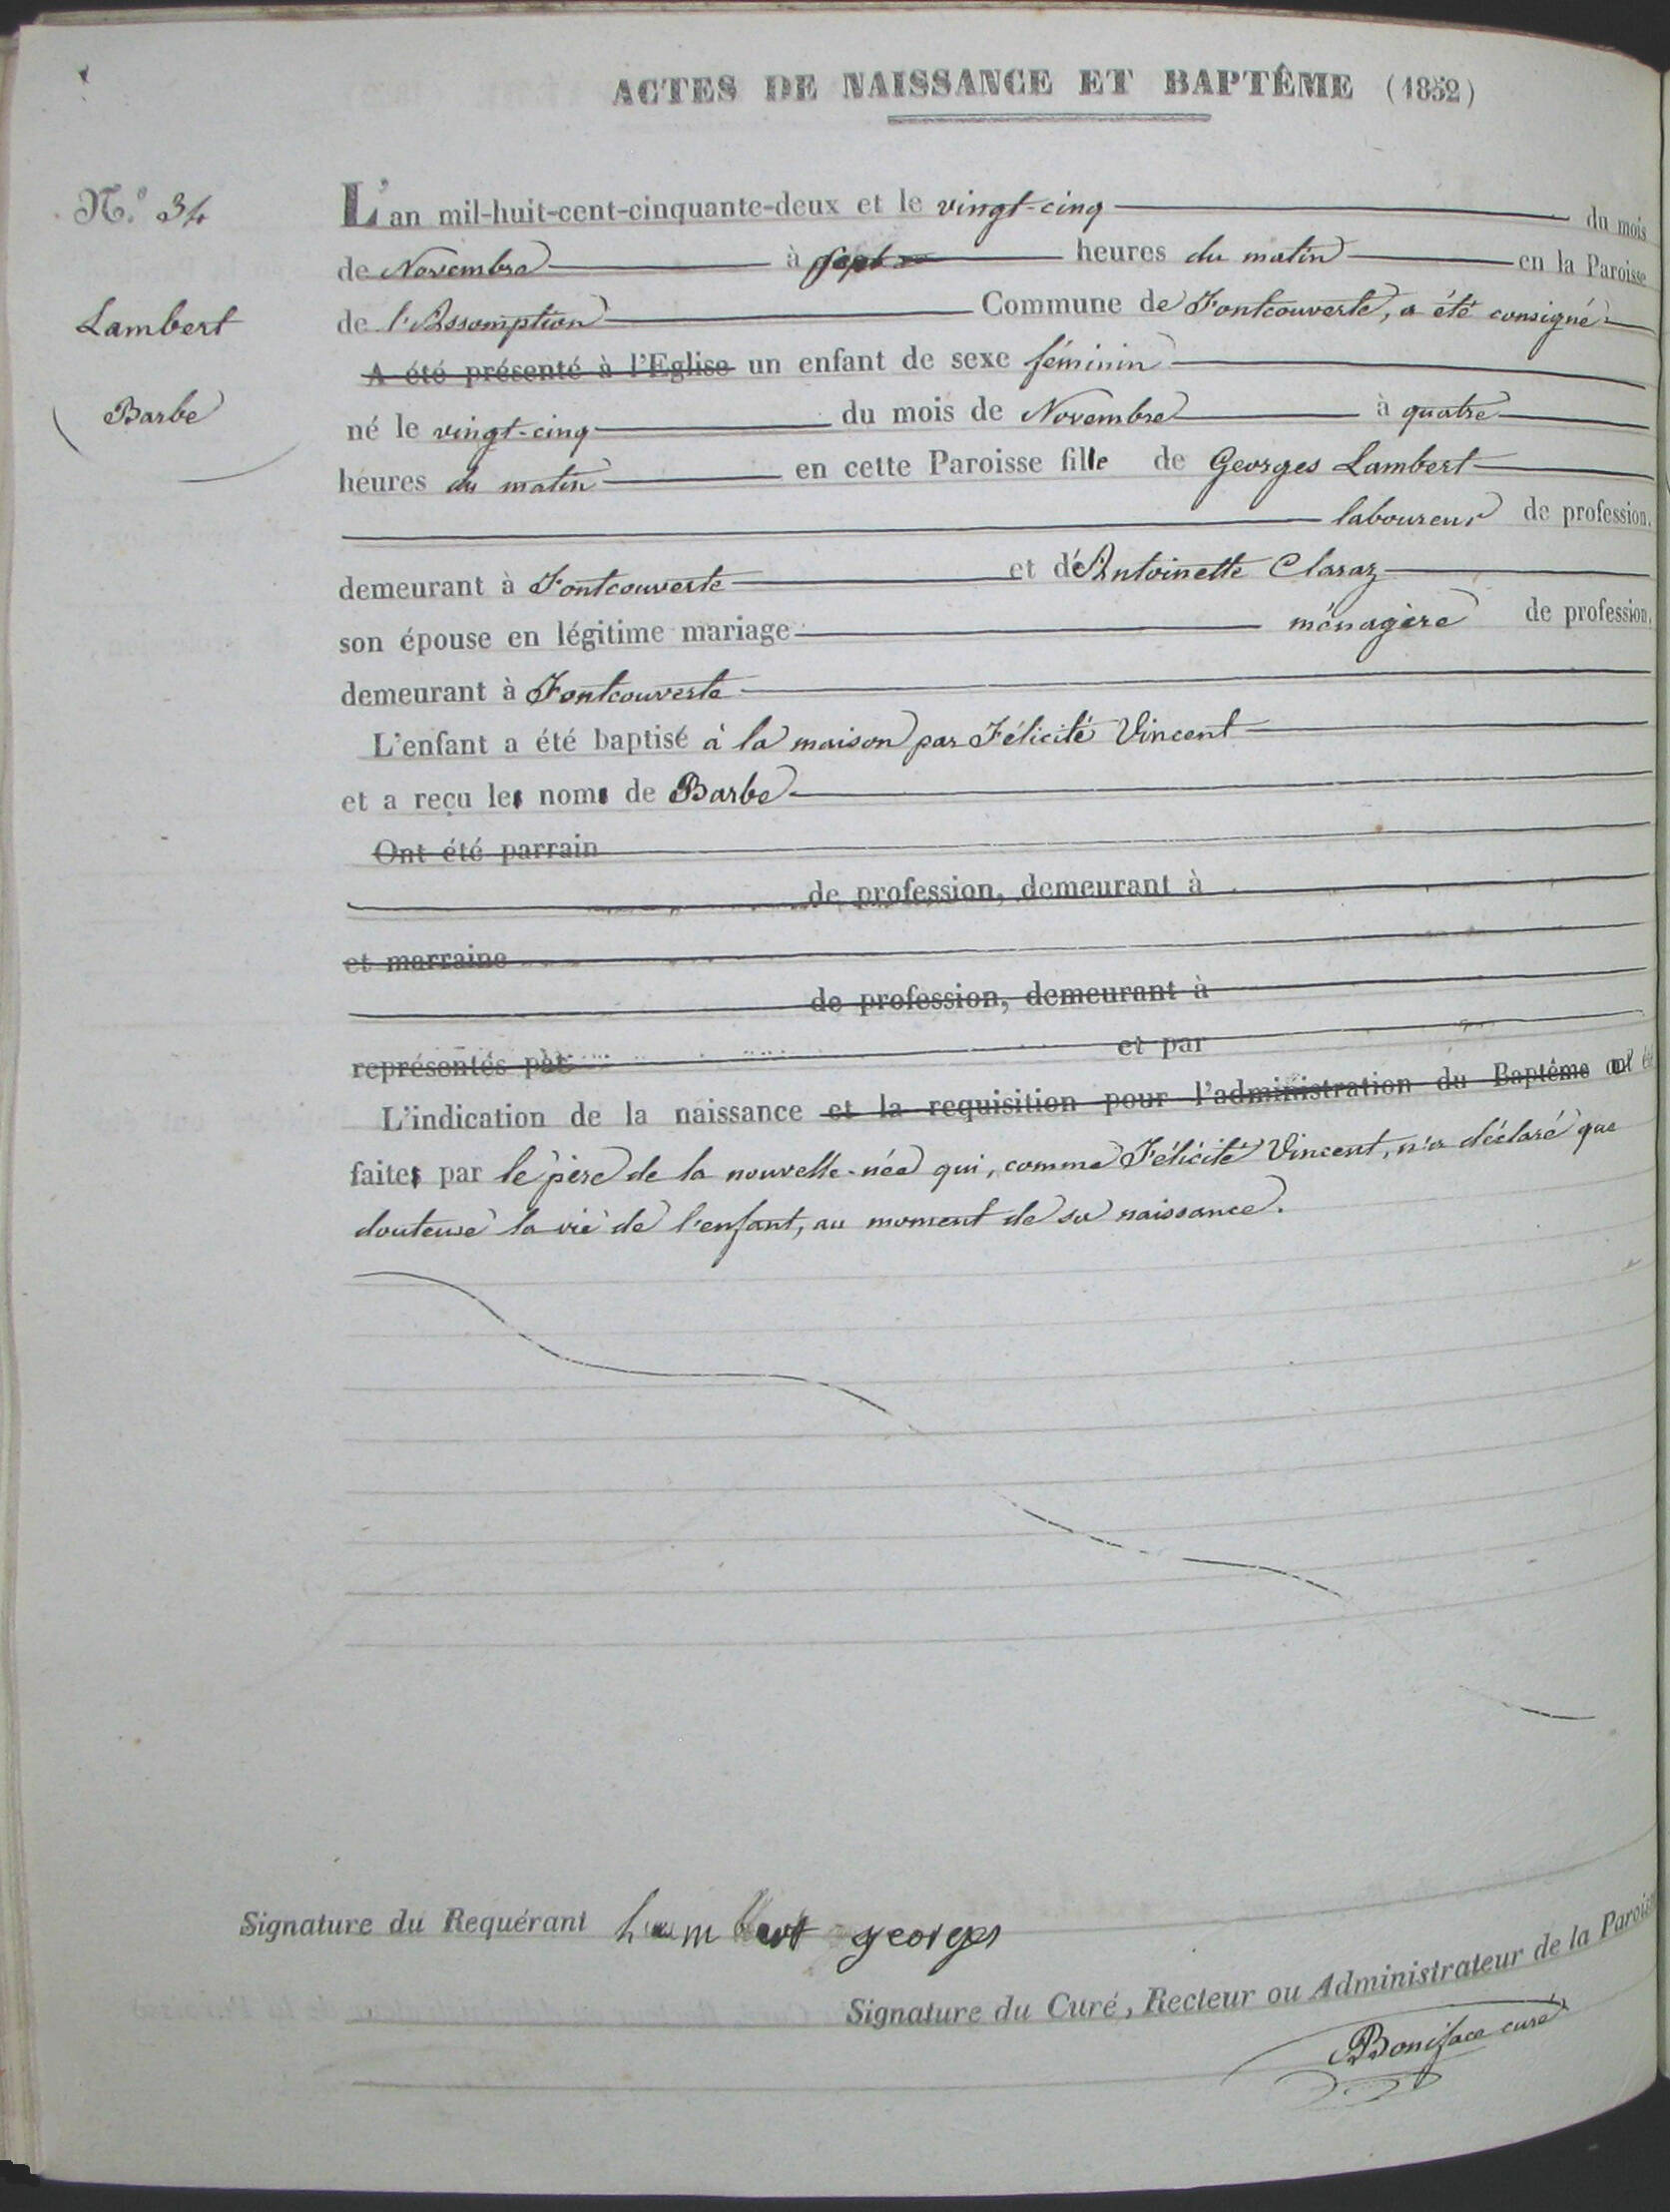 ACTES DE NAISSANCE ET BAPTÊME (1852)
N.° 34
Lambert
Barbe
L'an mil-huit-cent-cinquante-deux et le vingt-cinq du mois
de Novembre à sept heures du matin en la Paroisse
de l'Assomption Commune de Fontcouverte, a été consigné
A été présenté à l'Eglise un enfant de sexe féminin
né le vingt-cinq du mois de Novembre à quatre
heures du matin en cette Paroisse fille de Georges Lambert
laboureur de profession,
demeurant à Fontcouverte et d'Antoinette Claraz
son épouse en légitime mariage ménagère de profession,
demeurant à Fontcouverte
L'enfant a été baptisé à la maison par Félicité Vincent
et a reçu les noms de Barbe
Ont été parrain
de profession, demeurant à
et marraine
de profession, demeurant à
représentés par et par
L'indication de la naissance et la requisition pour l'administration du Baptême
faites par le père de la nouvelle-née qui, comme Félicité Vincent, n'a déclaré que
douteuse la vie de l'enfant, au moment de sa naissance.
Signature du Requérant Lambert georges
Signature du Curé, Recteur ou Administrateur de la Paroisse
Boniface curé